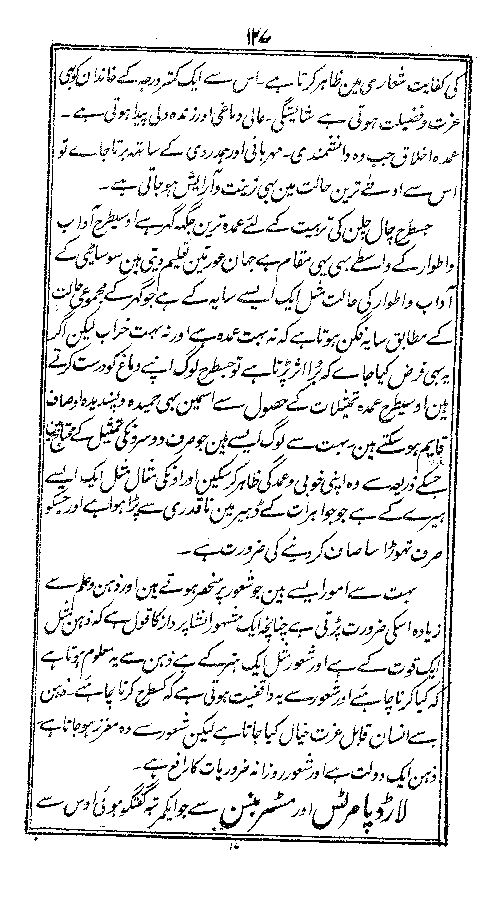 ۱۲۷
کی کفایت شعاری مین ظاہر کرتا ہے۔ اس سے ایک کمتر درجہ کے خاندان کو بھی
عزت و فضیلت ہوتی ہے شایستگی۔ عالی دماغی اور زندہ دلی پیدا ہوتی ہے۔
عمدہ اخلاق جب وہ دانشمندی۔ مہربانی اور ہمدردی کے ساتھ برتا جاے تو
اس سے ادنےٰ ترین حالت مین بھی زینت و آرایش ہوجاتی ہے۔
جسطرح چال چلن کی تربیت کے لئے عمدہ ترین جگہ گھر ہے اوسیطرح آداب
واطوار کے واسطے بھی یہی مقام ہے جہان عورتین تعلیم دیتی ہین سوسائٹی کے
آداب واطوار کی حالت مثل ایک ایسے سایہ کے ہے جو گھر کے مجموعی حالت
کے مطابق سایہ فگن ہوتا ہے کہ نہ بہت عمدہ ہے اور نہ بہت خراب لیکن اگر
یہ بھی فرض کیا جاے کہ بُرا اثر پڑتا ہے تو جسطرح لوگ اپنے دماغ کو درست کرتے
ہین اوسیطرح عمدہ تمثیلات کے حصول سے اسمین بھی حمیدہ و پسندیدہ اوصاف
قایم ہوسکتے ہین۔ بہت سے لوگ ایسے ہین جو صرف دوسرونکی تمثیل کے محتاج ہین
جسکے ذریعہ سے وہ اپنی خوبی وعمدگی ظاہر کرسکین اور اونکی مثال مثل ایک ایسے
ہیرے کے ہے جو جواہرات کے ڈھیر مین ناقدری سے پڑا ہوا ہے اور جسکو
صرف تھوڑا سا صاف کردینے کی ضرورت ہے۔
بہت سے امور ایسے ہین جو شعور پر منحصر ہوتے ہین اور ذہن وعلم سے
زیادہ اسکی ضرورت پڑتی ہے چنانچہ ایک مشہور انشا پرداز کا قول ہے کہ ذہن مثل
ایک قوت کے ہے اور شعور مثل ایک ہنر کے ہے ذہن سے یہ معلوم ہوتا ہے
کہ کیا کرنا چاہئے اور شعور سے یہ واقفیت ہوتی ہے کہ کسطرح کرنا چاہئے۔ ذہن
سے انسان قابل عزت خیال کیا جاتا ہے لیکن شعور سے وہ معزز ہوجاتا ہے
ذہن ایک دولت ہے اور شعور روزانہ ضروریات کا رافع ہے۔
لارڈ پامرٹس اور مسٹر بہنس سے جو ایک مرتبہ گفتگو ہوئی اوس سے